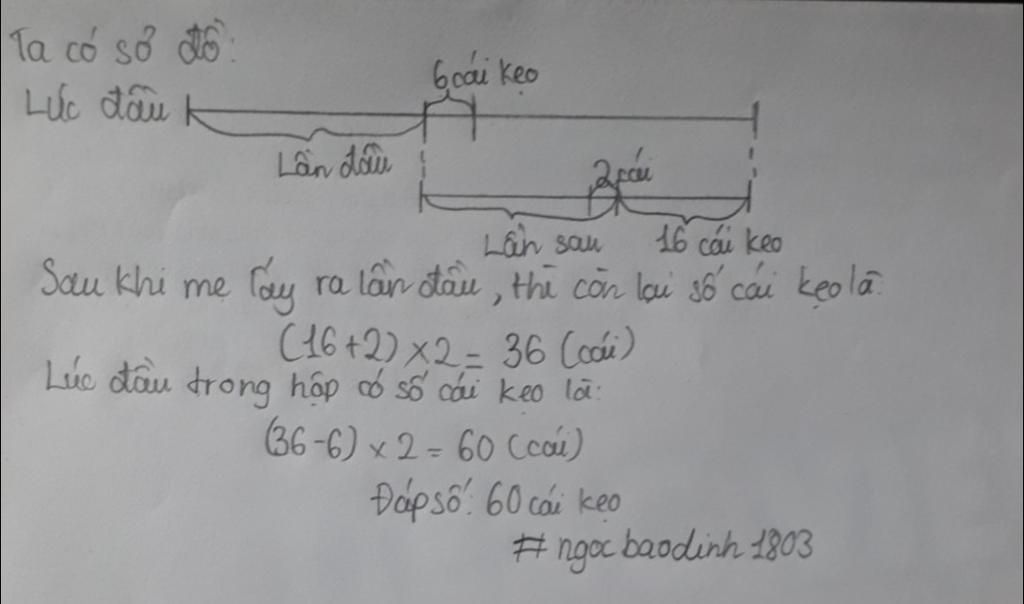 Ta có sơ đồ:
6 cái kẹo
Lúc đầu
Lần đầu
2 cái
Lần sau 16 cái kẹo
Sau khi mẹ lấy ra lần đầu, thì còn lại số cái kẹo là:
(16+2) × 2 = 36 (cái)
Lúc đầu trong hộp có số cái kẹo là:
(36-6) × 2 = 60 (cái)
Đáp số: 60 cái kẹo
# ngocbaodinh1803